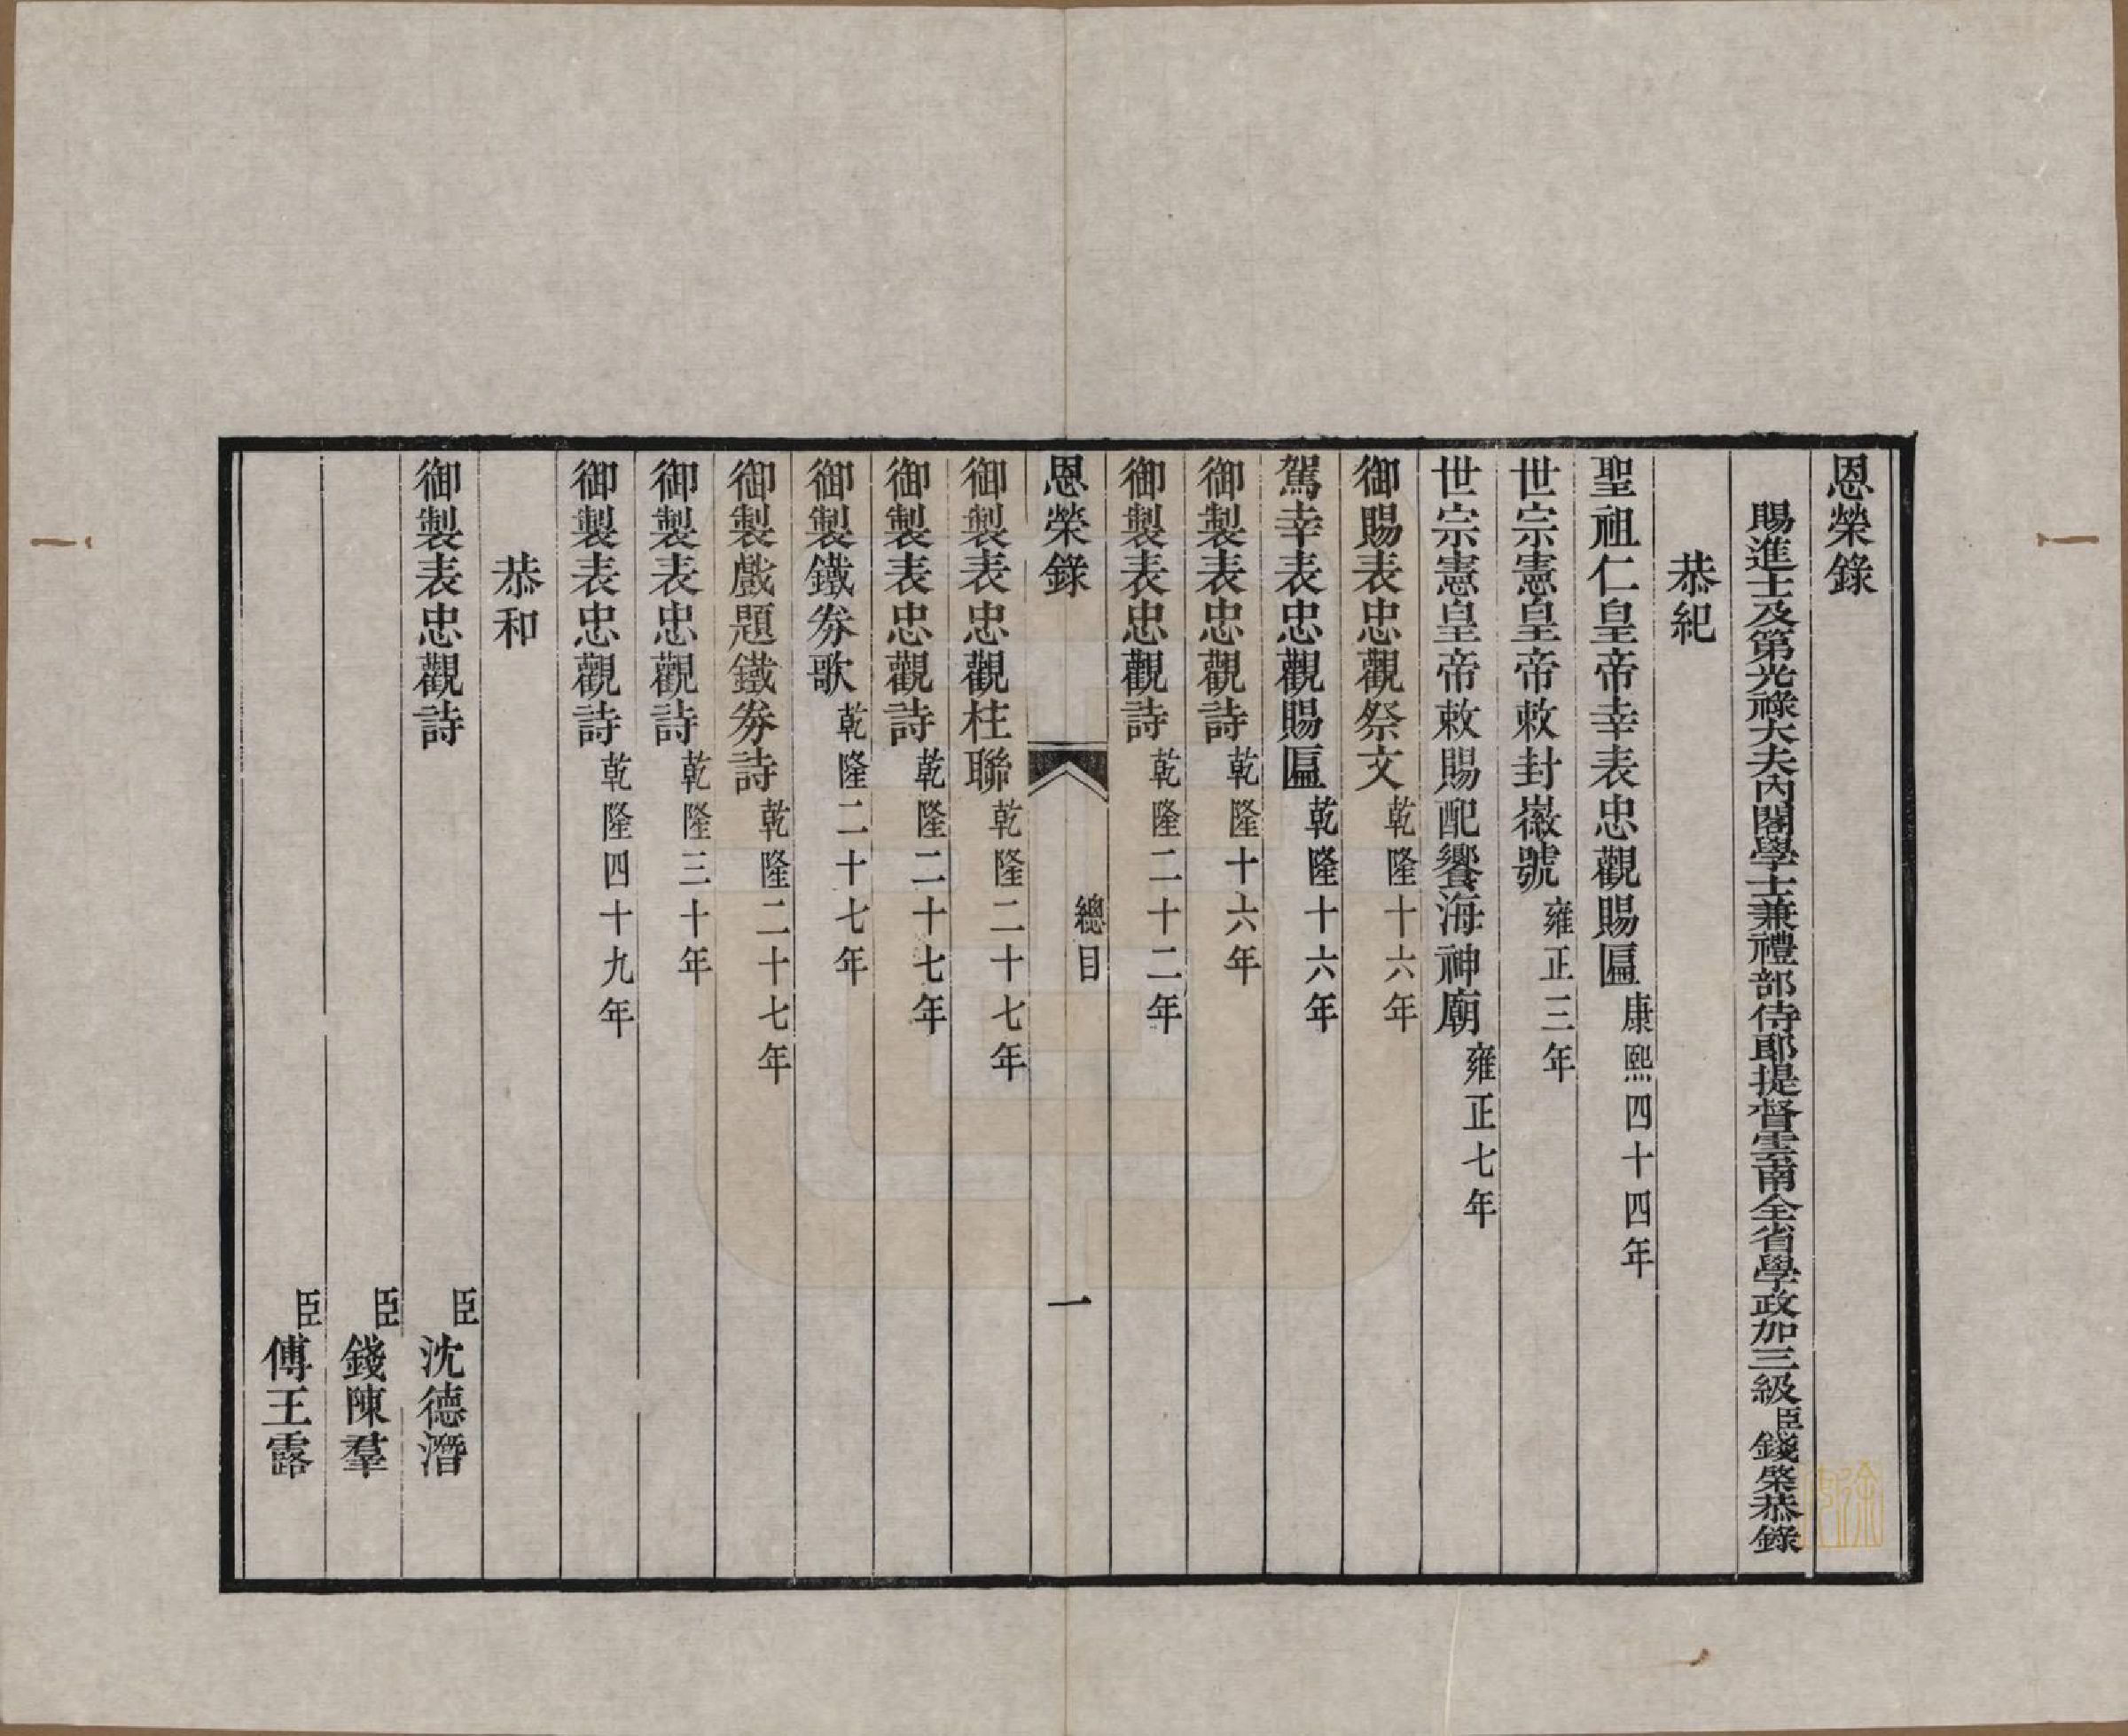 恩榮錄
賜進士及第光祿大夫內閣學士兼禮部侍郎提督雲南全省學政加三級臣錢棨恭錄
恭紀
聖祖仁皇帝幸表忠觀賜匾康熙四十四年
世宗憲皇帝敕封徽號雍正三年
世宗憲皇帝敕賜配饗海神廟雍正七年
御賜表忠觀祭文乾隆十六年
駕幸表忠觀賜匾乾隆十六年
御製表忠觀詩乾隆十六年
御製表忠觀詩乾隆二十二年
恩榮錄 總目 一
御製表忠觀柱聯乾隆二十七年
御製表忠觀詩乾隆二十七年
御製鐵券歌乾隆二十七年
御製戲題鐵券詩乾隆二十七年
御製表忠觀詩乾隆三十年
御製表忠觀詩乾隆四十九年
恭和
御製表忠觀詩 臣沈德潛
臣錢陳羣
臣傅王露